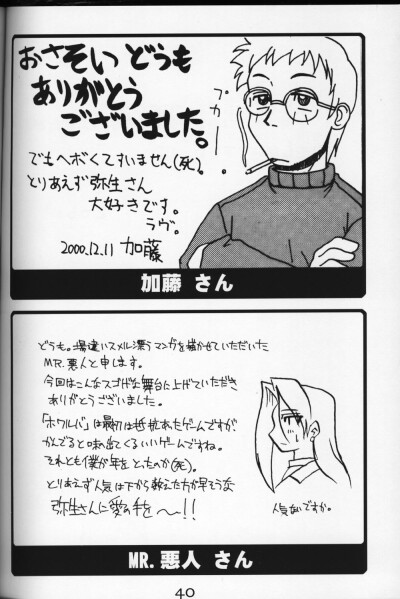 おさそい どうも
ありがとう
ございました。
プカー
でもヘボくてすいません(死)。
とりあえず弥生さん
大好きです。
ラヴ。
2000.12.11 加藤
加藤 さん
どうも。場違いスメル漂うマンガを描かせていただいた
MR.悪人と申します。
今回はこんなスゴゲな舞台に上げていただき
ありがとうございました。
「ホワルバ」は最初は抵抗あったゲームですが
かんでると味の出てくるいいゲームですね。
それとも僕が年をとったのか(死)。
とりあえず人気は下から数えた方が早そうな
弥生さんに愛の手を〜!!
人気ないですか。
MR. 悪人 さん
40